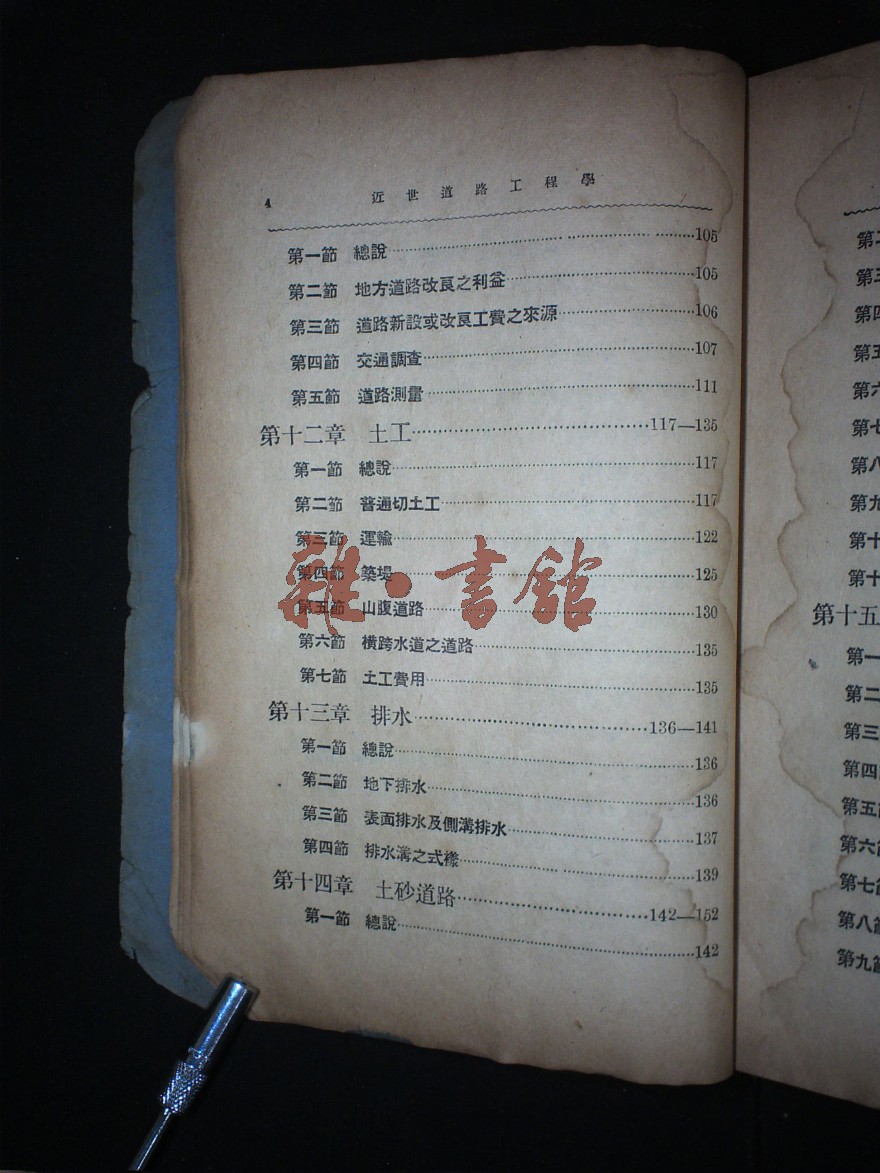 4 近世道路工程學
第一節 總說……105
第二節 地方道路改良之利益……105
第三節 道路新設或改良工費之來源……106
第四節 交通調查……107
第五節 道路測量……111
第十二章 土工……117—135
第一節 總說……117
第二節 普通切土工……117
第三節 運輸……122
第四節 築堤……125
第五節 山腹道路……130
第六節 橫跨水道之道路……135
第七節 土工費用……135
第十三章 排水……136—141
第一節 總說……136
第二節 地下排水……136
第三節 表面排水及側溝排水……137
第四節 排水溝之式樣……139
第十四章 土砂道路……142—152
第一節 總說……142
雜·書館
第二
第三
第四
第五
第六
第七
第八
第九
第十
第十
第十五
第一
第二
第三
第四
第五
第六
第七節
第八節
第九節